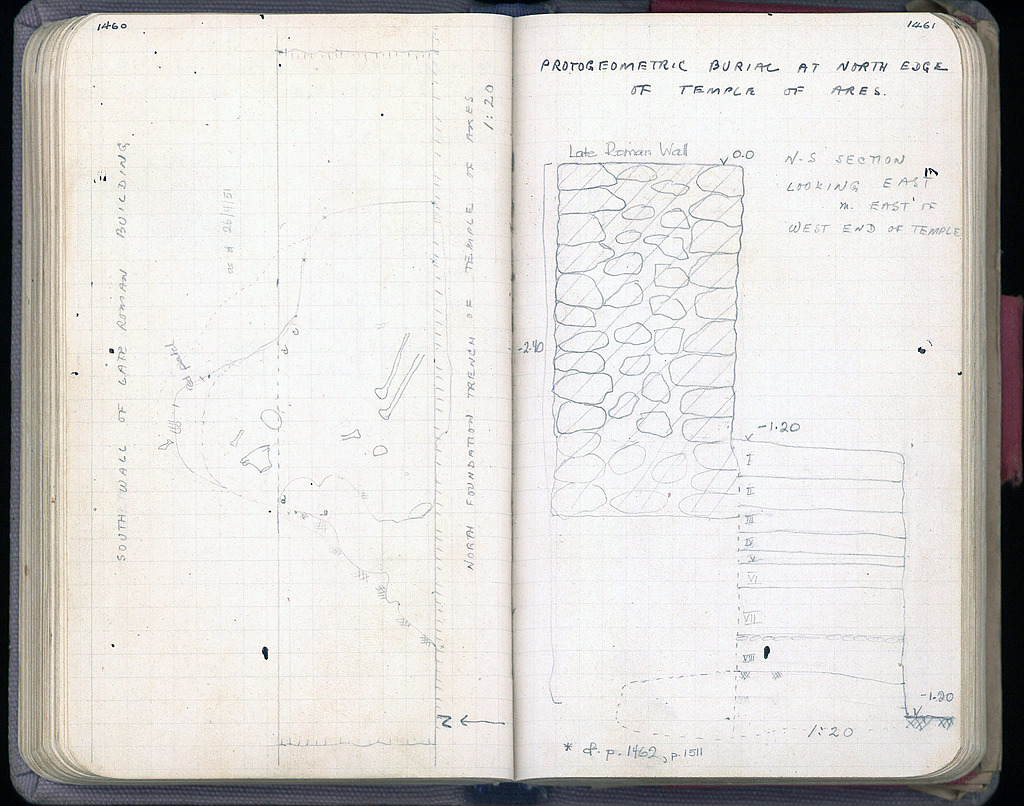 1460
SOUTH WALL OF LATE ROMAN BUILDING
as of 26/4/51
red patch
c
c
a
b
NORTH FOUNDATION TRENCH OF TEMPLE OF ARES
1:20
N
1461
PROTOGEOMETRIC BURIAL AT NORTH EDGE
OF TEMPLE OF ARES.
Late Roman Wall
0.0
N-S SECTION
LOOKING EAST
m. EAST OF
WEST END OF TEMPLE
-2.40
-1.20
I
II
III
IV
V
VI
VII
VIII
-1.20
1:20
* cf. p. 1462, p. 1511